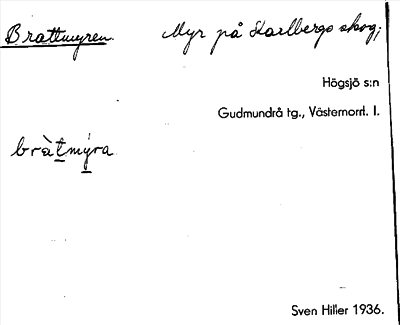 Brattmyren. Myr på Karlbergs skog;
Högsjö s:n
Gudmundrå tg., Västernorrl. l.
bràtmýra
Sven Hiller 1936.